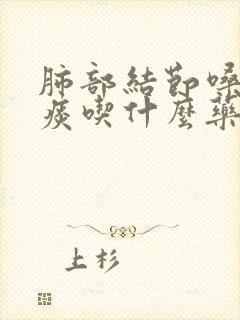 肺部結節嗓
痰喫什麼藥
上杉